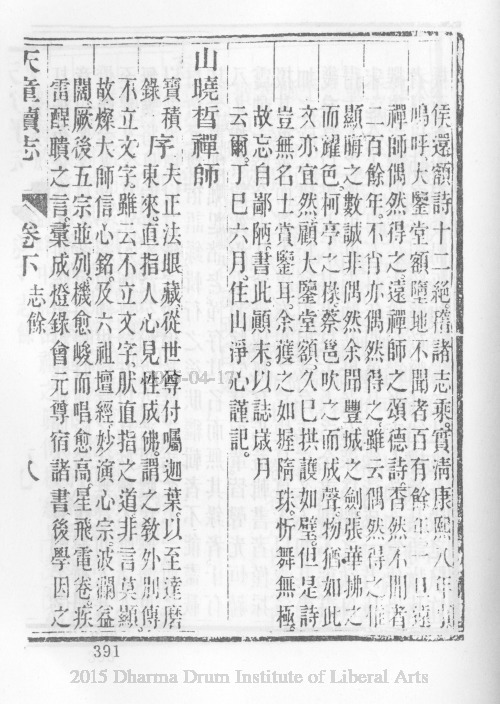 侯還額詩十二絕牆諸志乘實清康熙八年
嗚呼大鑒堂額墮地不聞者百有餘年一旦遠
禪師偶然得之遠禪師之頌德詩杳然不聞者
二百餘年不肖亦偶然得之雖云偶然得之惟
顯晦之數誠非偶然余聞豐城之劍張華拂之
而耀色柯亭之椽蔡邕吹之而成聲物猶如此
文亦宜然顧大鑒堂額久已拱護如璧但是詩
豈無名士賞鑒耳余獲之如握隋珠忻舞無極
故忘自鄙陋書此顚末以誌歲月
云爾丁巳六月住山淨心謹記
山曉晳禪師
寶積序夫正法眼藏從世尊付囑迦葉以至達磨
錄東來直指人心見性成佛謂之敎外別傳
不立文字雖云不立文字肰直指之道非言莫顯
故燦大師信心銘及六祖壇經妙演心宗波瀾益
闊厥後五宗並列機愈峻而唱愈高星飛電卷疾
雷醒聵之言彙成燈錄會元尊宿諸書後學因之
天童續志 卷下 志餘 八
391
2015 Dharma Drum Institute of Liberal Arts